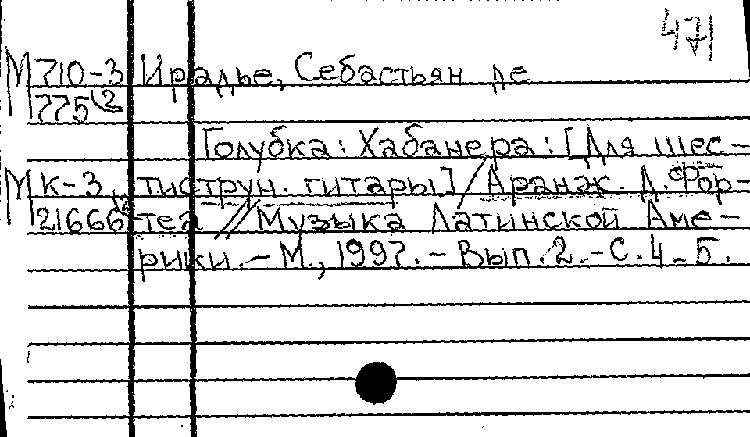 471
М 710-3 Ирадье, Себастьян де
775(2
Голубка: Хабанера: [Для шес-
М К-3 тиструн. гитары] / Аранж. Д. Фор-
21666(2 теа // Музыка Латинской Аме-
рики. - М., 1997. - Вып. 2. - С. 4-5.